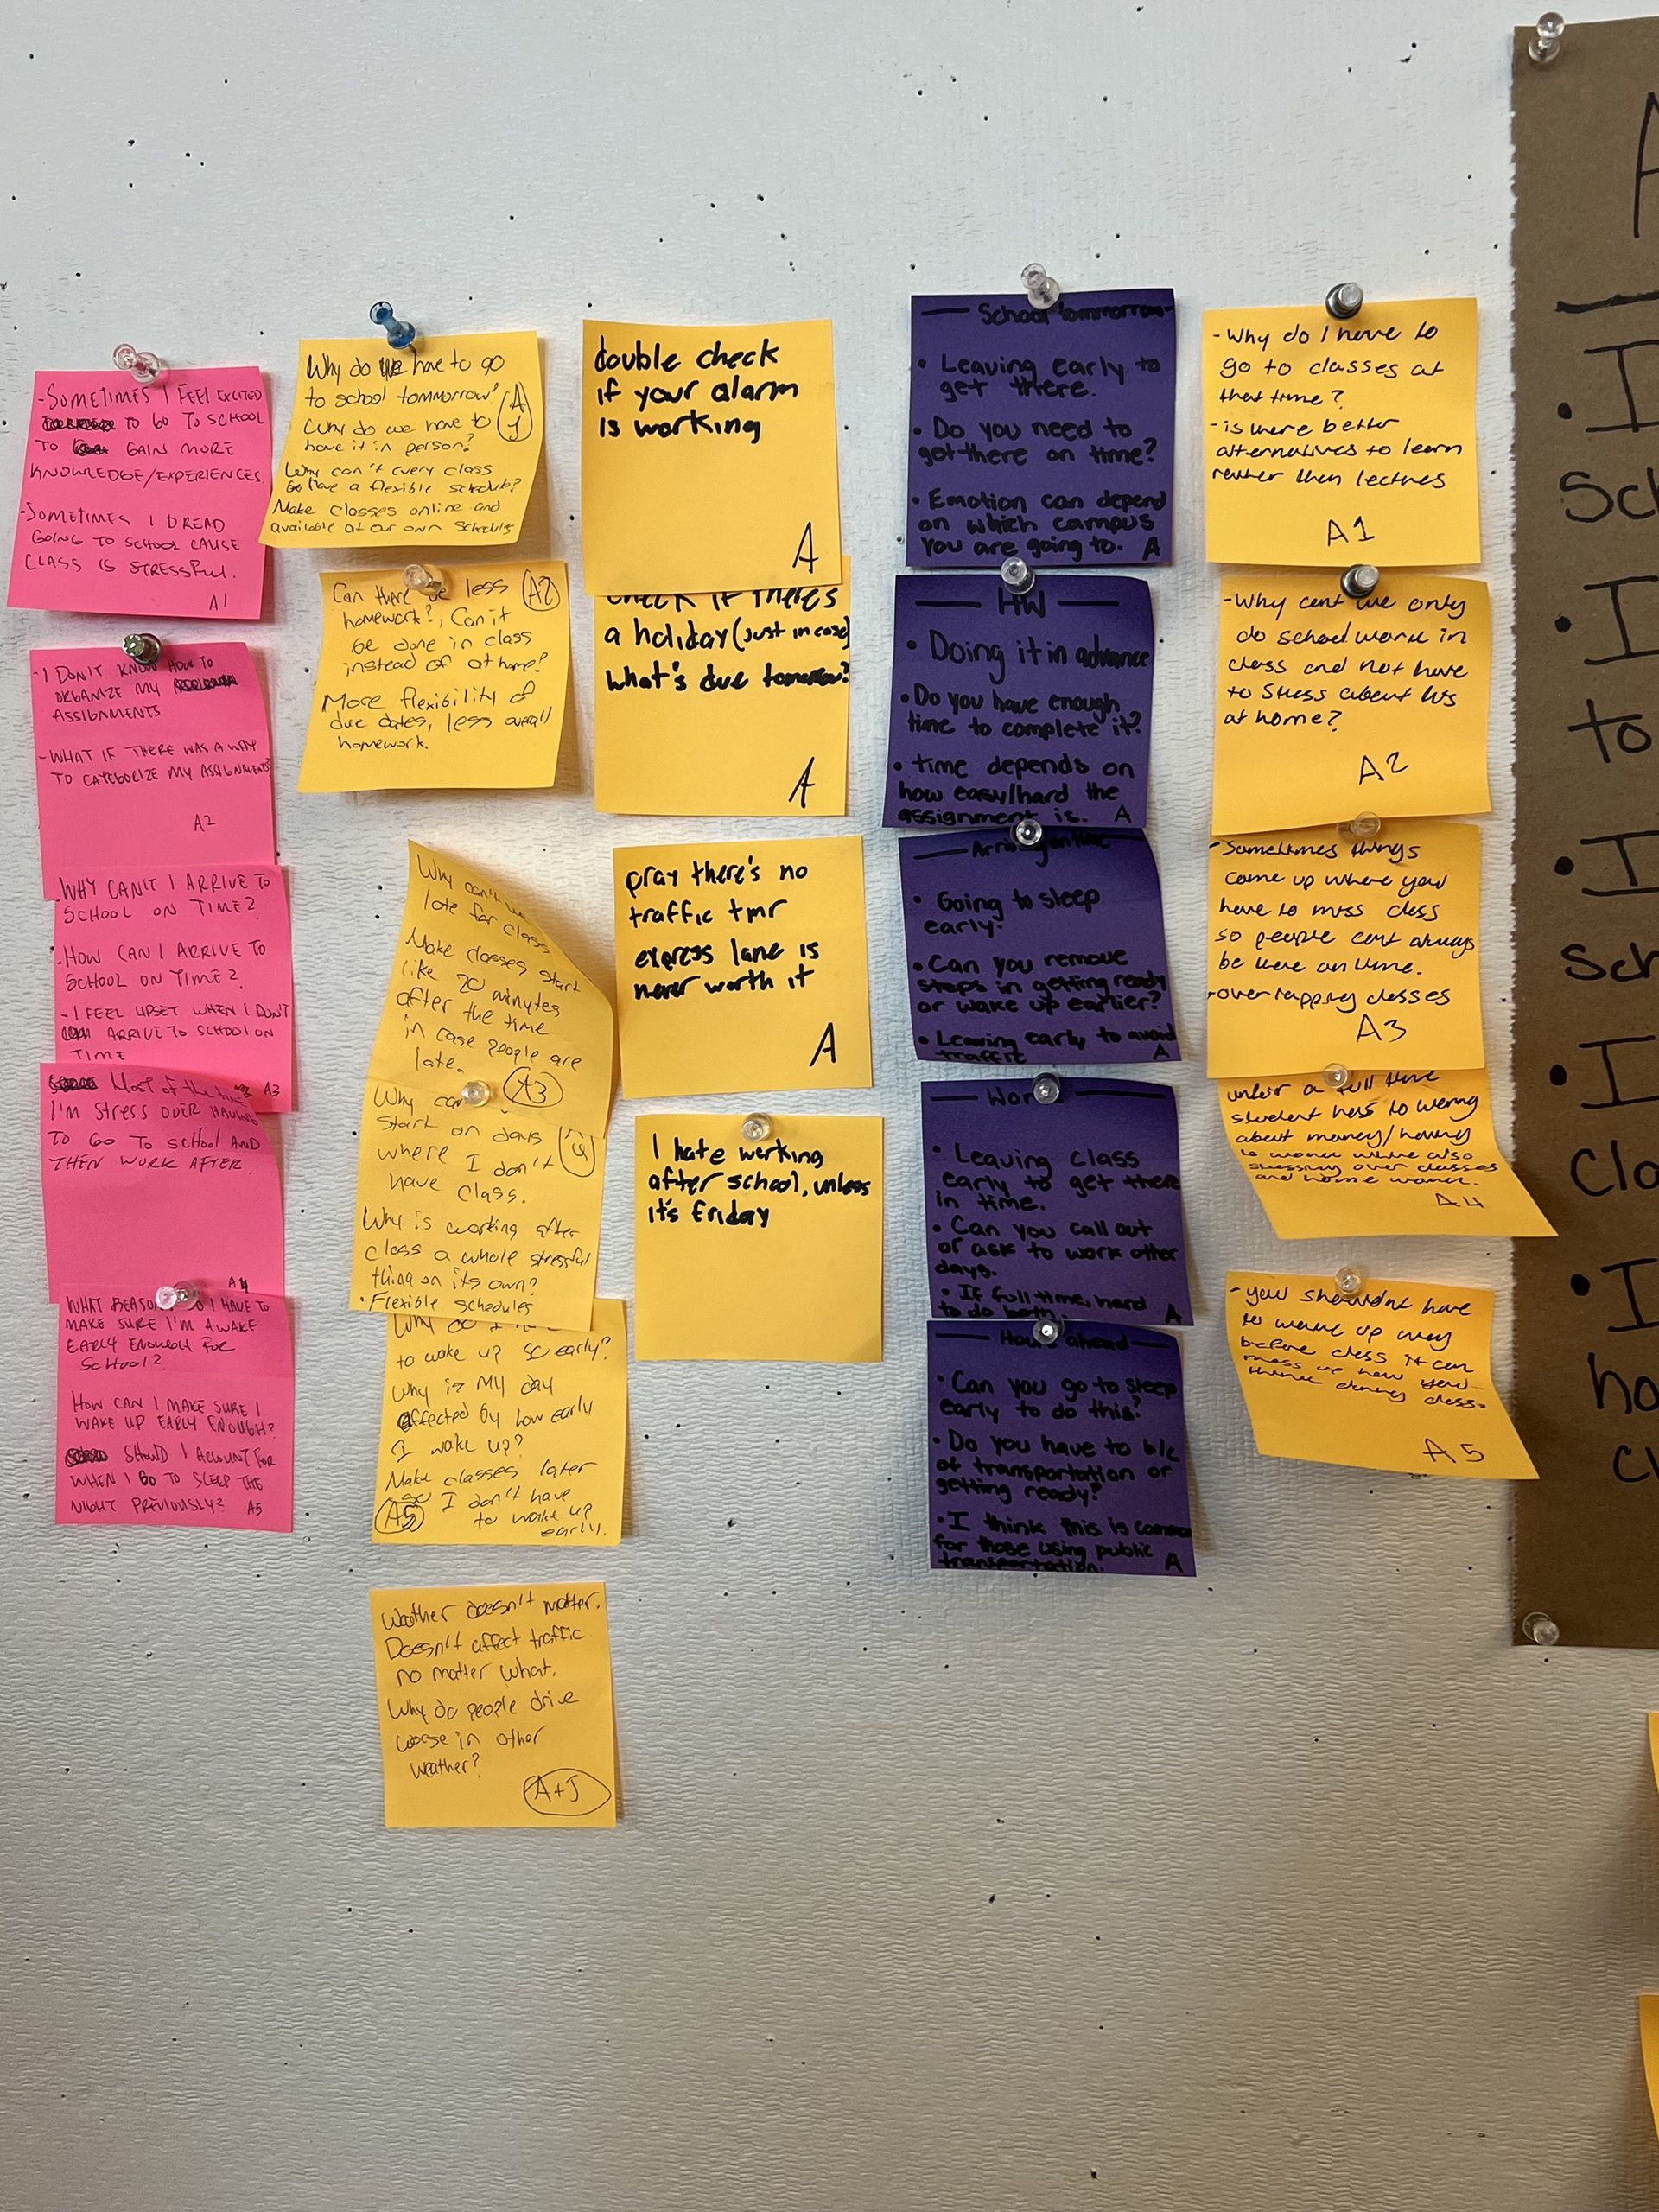 -SOMETIMES I FEEL EXCITED
TO GO TO SCHOOL
TO GAIN MORE
KNOWLEDGE/EXPERIENCES.
-SOMETIMES I DREAD
GOING TO SCHOOL CAUSE
CLASS IS STRESSFUL.
A1
-I DON'T KNOW HOW TO
ORGANIZE MY
ASSIGNMENTS
-WHAT IF THERE WAS A WAY
TO CATEGORIZE MY ASSIGNMENTS
A2
WHY CAN'T I ARRIVE TO
SCHOOL ON TIME?
-HOW CAN I ARRIVE TO
SCHOOL ON TIME?
-I FEEL UPSET WHEN I DON'T
ARRIVE TO SCHOOL ON
TIME
A3
MOST OF THE
I'M STRESS OVER HAVING
TO GO TO SCHOOL AND
THEN WORK AFTER.
A4
WHAT REASON DO I HAVE TO
MAKE SURE I'M AWAKE
EARLY ENOUGH FOR
SCHOOL?
HOW CAN I MAKE SURE I
WAKE UP EARLY ENOUGH?
SHOULD I ACCOUNT FOR
WHEN I GO TO SLEEP THE
NIGHT PREVIOUSLY? A5
Why do we have to go
to school tommorrow?
Why do we have to
have it in person?
Why can't every class
have a flexible schedule?
Make classes online and
available at our own schedule
A
Can there be less
homework?, Can it
be done in class
instead of at home?
More flexibility of
due dates, less overall
homework.
A2
Why can't we
late for class
Make classes start
like 20 minutes
after the time
in case people are
late.
A3
Why can
start on days
where I don't
have class.
Why is working after
class a whole stressful
thing on its own?
• Flexible schedules
to wake up so early?
Why is my day
affected by how early
I wake up?
Make classes later
so I don't have
to wake up
early.
A5
Weather doesn't matter.
Doesn't affect traffic
no matter what.
Why do people drive
worse in other
weather?
A+J
double check
if your alarm
is working
A
check if there's
a holiday (just in case)
what's due tomorrow?
A
pray there's no
traffic tmr
express lane is
never worth it
A
I hate working
after school, unless
it's friday
School tommorrow
• Leaving early to
get there.
• Do you need to
get there on time?
• Emotion can depend
on which campus
you are going to. A
HW
• Doing it in advance
• Do you have enough
time to complete it?
• time depends on
how easy/hard the
assignment is. A
• Going to sleep
early.
• Can you remove
steps in getting ready
or wake up earlier?
• Leaving early to avoid
traffic A
Work
• Leaving class
early to get there
in time.
• Can you call out
or ask to work other
days.
• If full time, hard
to do both. A
Hours ahead
• Can you go to sleep
early to do this?
• Do you have to b/c
of transportation or
getting ready?
• I think this is common
for those using public
transportation. A
-Why do I have to
go to classes at
that time?
-is there better
alternatives to learn
rather then lectures
A1
-Why cant we only
do school work in
class and not have
to stress about its
at home?
A2
- Sometimes things
come up where you
have to miss class
so people cant always
be there on time.
-overlapping classes
A3
student has to worry
about money/having
to work while also
stressing over classes
and home work.
A4
- you shouldnt have
to wake up
before class it can
mess up how you
think during class.
A5
A
• I
Sch
• I
to
• I
sch
• I
cla
• I
ho
cl